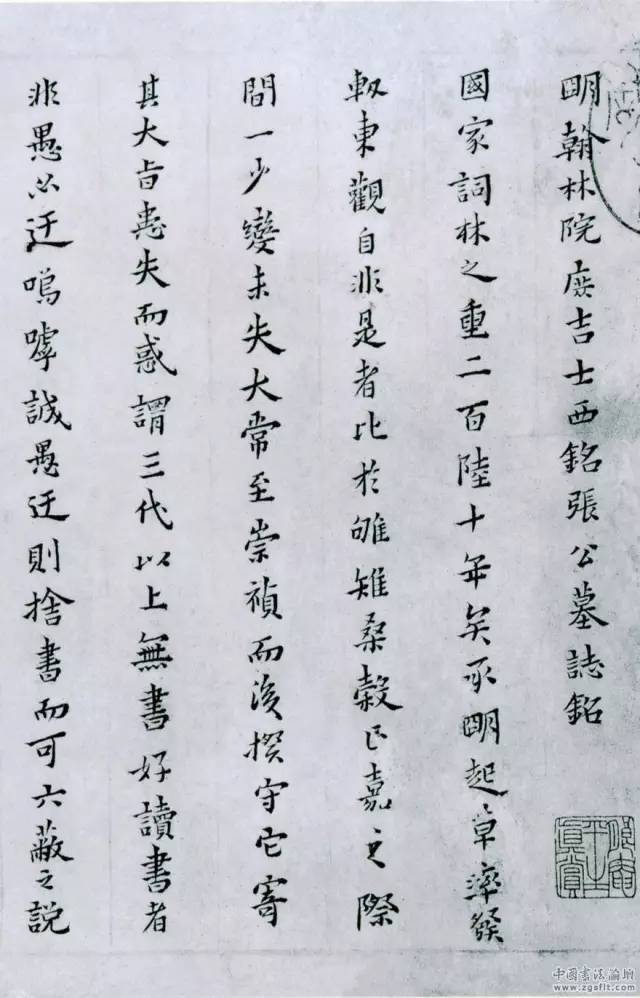 明翰林院庶吉士西銘張公墓誌銘
國家詞林之重二百陸十年矣承明起草率發
軔東觀自非是者比於雊雉桑穀正嘉之際
間一少變未失大常至崇禎而後揆守它寄
其大旨患失而惑謂三代以上無書好讀書者
非愚必迂嗚嘑誠愚迂則捨書而可六蔽之說
中國書法論壇
www.zgsflt.com